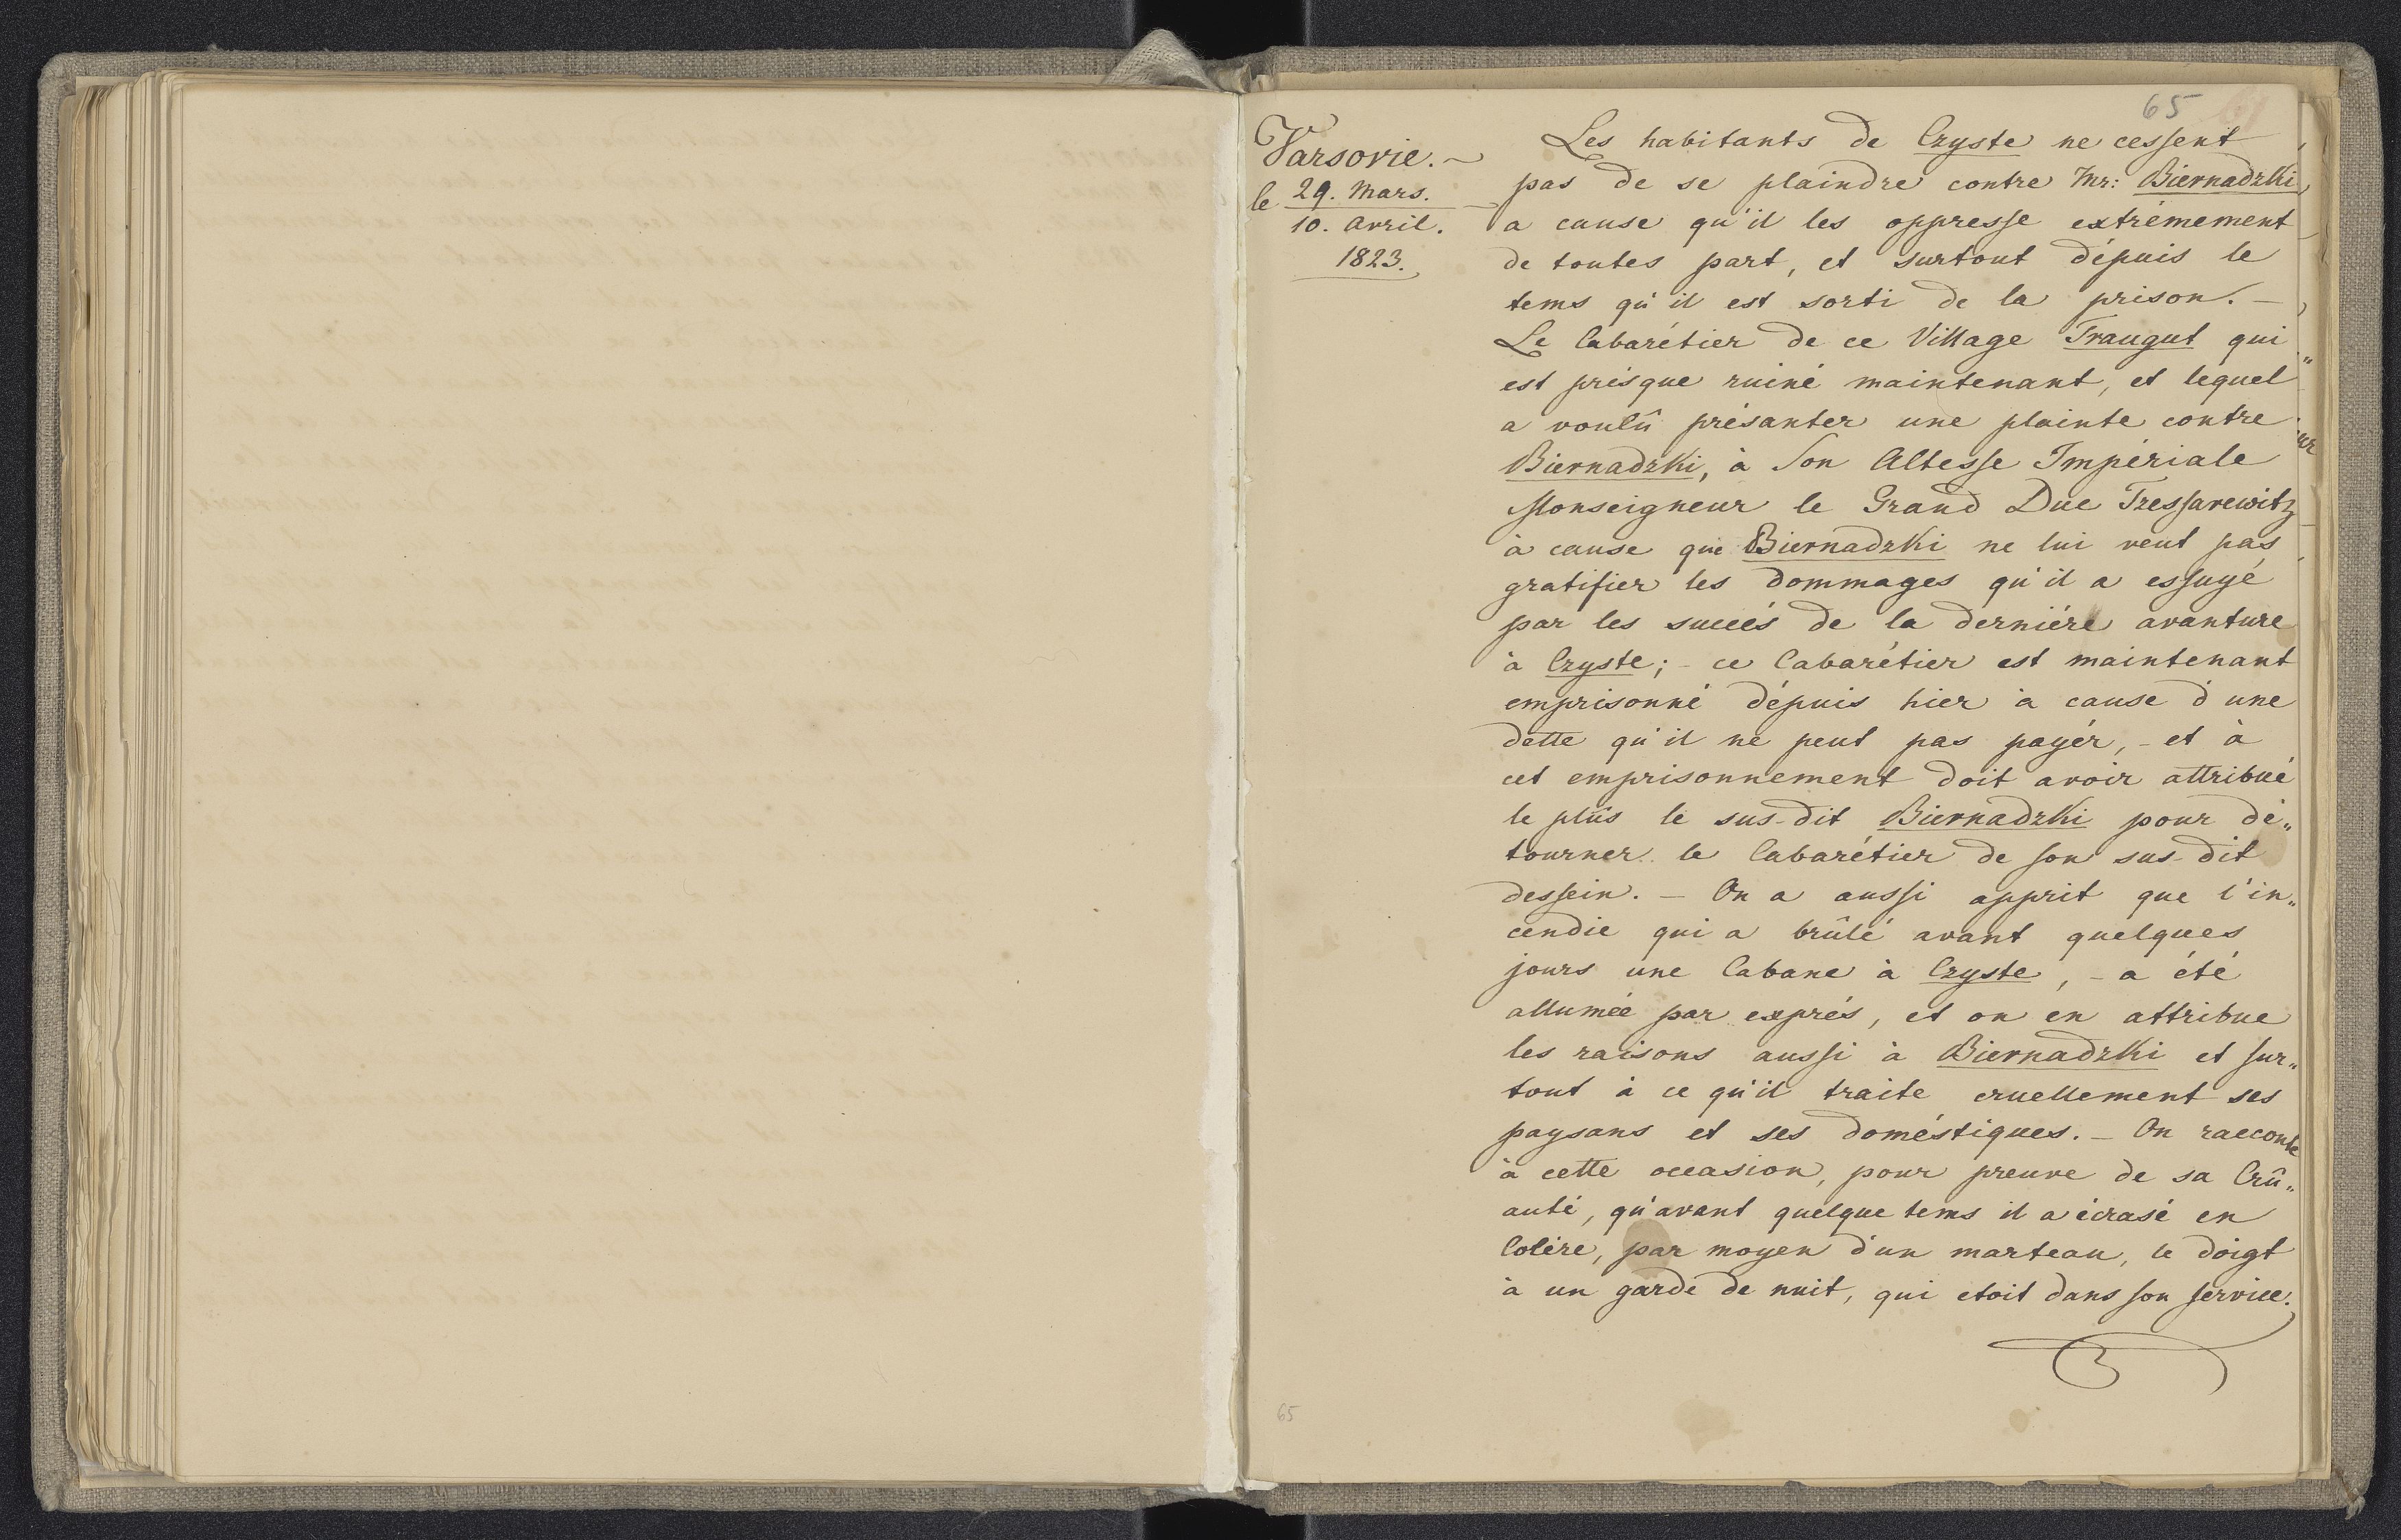 65
Varsovie.
le 29. Mars.
10. Avril.
1823.
Les habitants de Czyste ne cessent
pas de se plaindre contre Mr: Biernadzki,
a cause qu'il les oppresse extrémement
de toutes part, et surtout dépuis le
tems qu'il est sorti de la prison. –
Le Cabarétier de ce Village Traugut qui
est présque ruiné maintenant, et léquel
a voulû présanter une plainte contre
Biernadzki, à Son Altesse Impériale
Monseigneur le Grand Duc Tzessarewitz
à cause que Biernadzki ne lui veut pas
gratifier les dommages qu'il a essuyé
par les succés de la derniére avanture
à Czyste; – ce Cabarétier est maintenant
emprisonné dépuis hier à cause d'une
dette qu'il ne peut pas payér, – et à
cet emprisonnement doit avoir attribué
le plûs le sus-dit Biernadzki pour dé„
tourner le Cabarétier de son sus-dit
dessein. – On a aussi apprit que l'in„
cendie qui a brûlé avant quelques
jours une Cabane à Czyste, – a été
allumée par exprés, et on en attribue
les raisons aussi à Biernadzki et sur„
tout à ce qu'il traite cruellement ses
paysans et ses doméstiques. – On racconte
à cette occasion, pour preuve de sa Crû„
auté, qu'avant quelque tems il a écrasé en
Colére, par moyen d'un marteau, le doigt
à un garde de nuit, qui etoit dans son service.
65